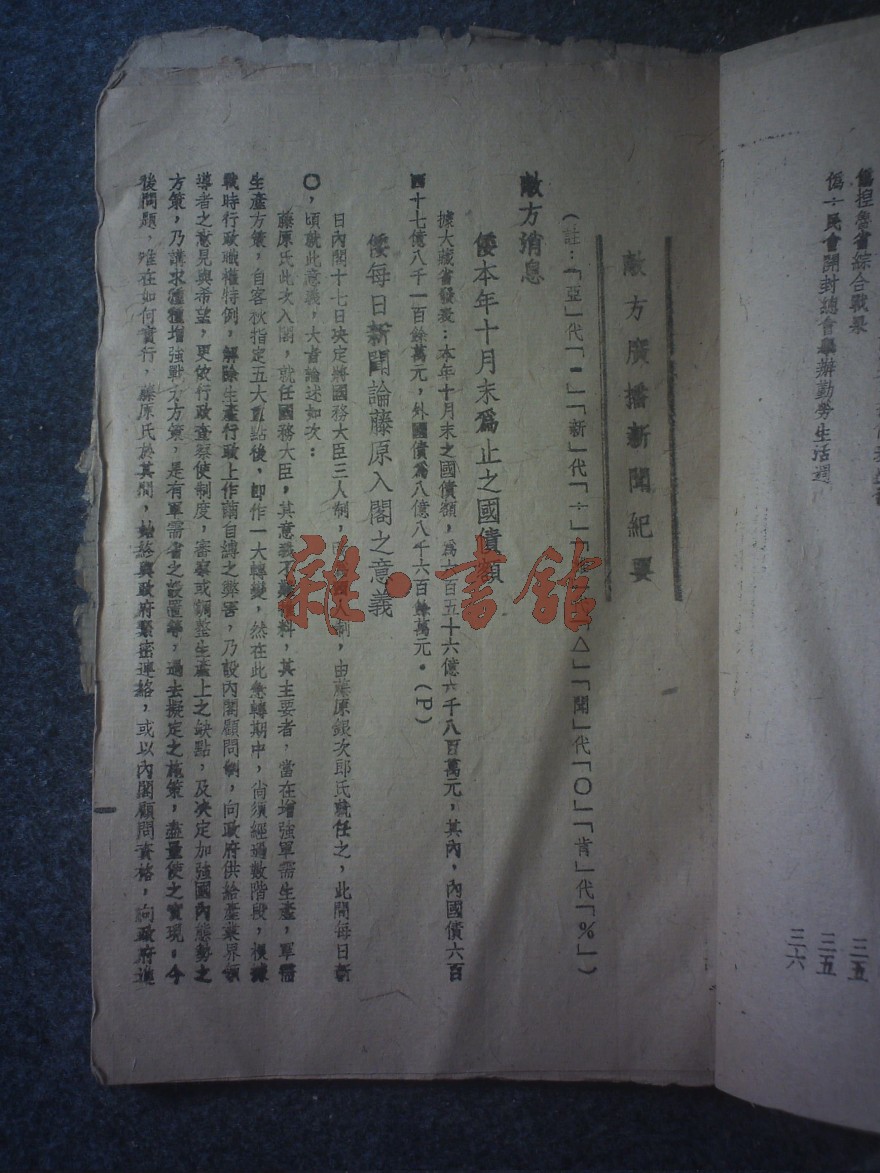 偽捏魯省綜合戰果
三五
偽÷民會開封總會舉辦勤勞生活週
三五
三六
敵方廣播新聞紀要
(註：「亞」代「━」「新」代「÷」「 △」「聞」代「〇」「肯」代「%」)
敵方消息
倭本年十月末爲止之國債額
據大藏省發表：本年十月末之國債額，爲六百五十六億六千八百萬元，其內，內國債六百
四十七億八千一百餘萬元，外國債爲八億八千六百餘萬元。(P)
倭每日新聞論藤原入閣之意義
日內閣十七日決定將國務大臣三人制， 人制，由藤原銀次郎氏就任之，此間每日新
〇，頃就此意義，大書論述如次：
藤原氏此次入閣，就任國務大臣，其意義不難 料，其主要者，當在增強軍需生產，軍需
生產方策，自客秋指定五大重點後，卽作一大轉變，然在此急轉期中，尙須經過數階段，根據
戰時行政職權特例，解除生產行政上作繭自縛之弊害，乃設內閣顧問制，向政府供給產業界領
導者之意見與希望，更依行政查察使制度，審察或調整生產上之缺點，及決定加強國內態勢之
方策，乃講求種種增強戰力方策，是有軍需省之設置等，過去擬定之施策，盡量使之實現，今
後問題，唯在如何實行，藤原氏於其間，始終與政府緊密連絡，或以內閣顧問資格，向政府進
雜·書館